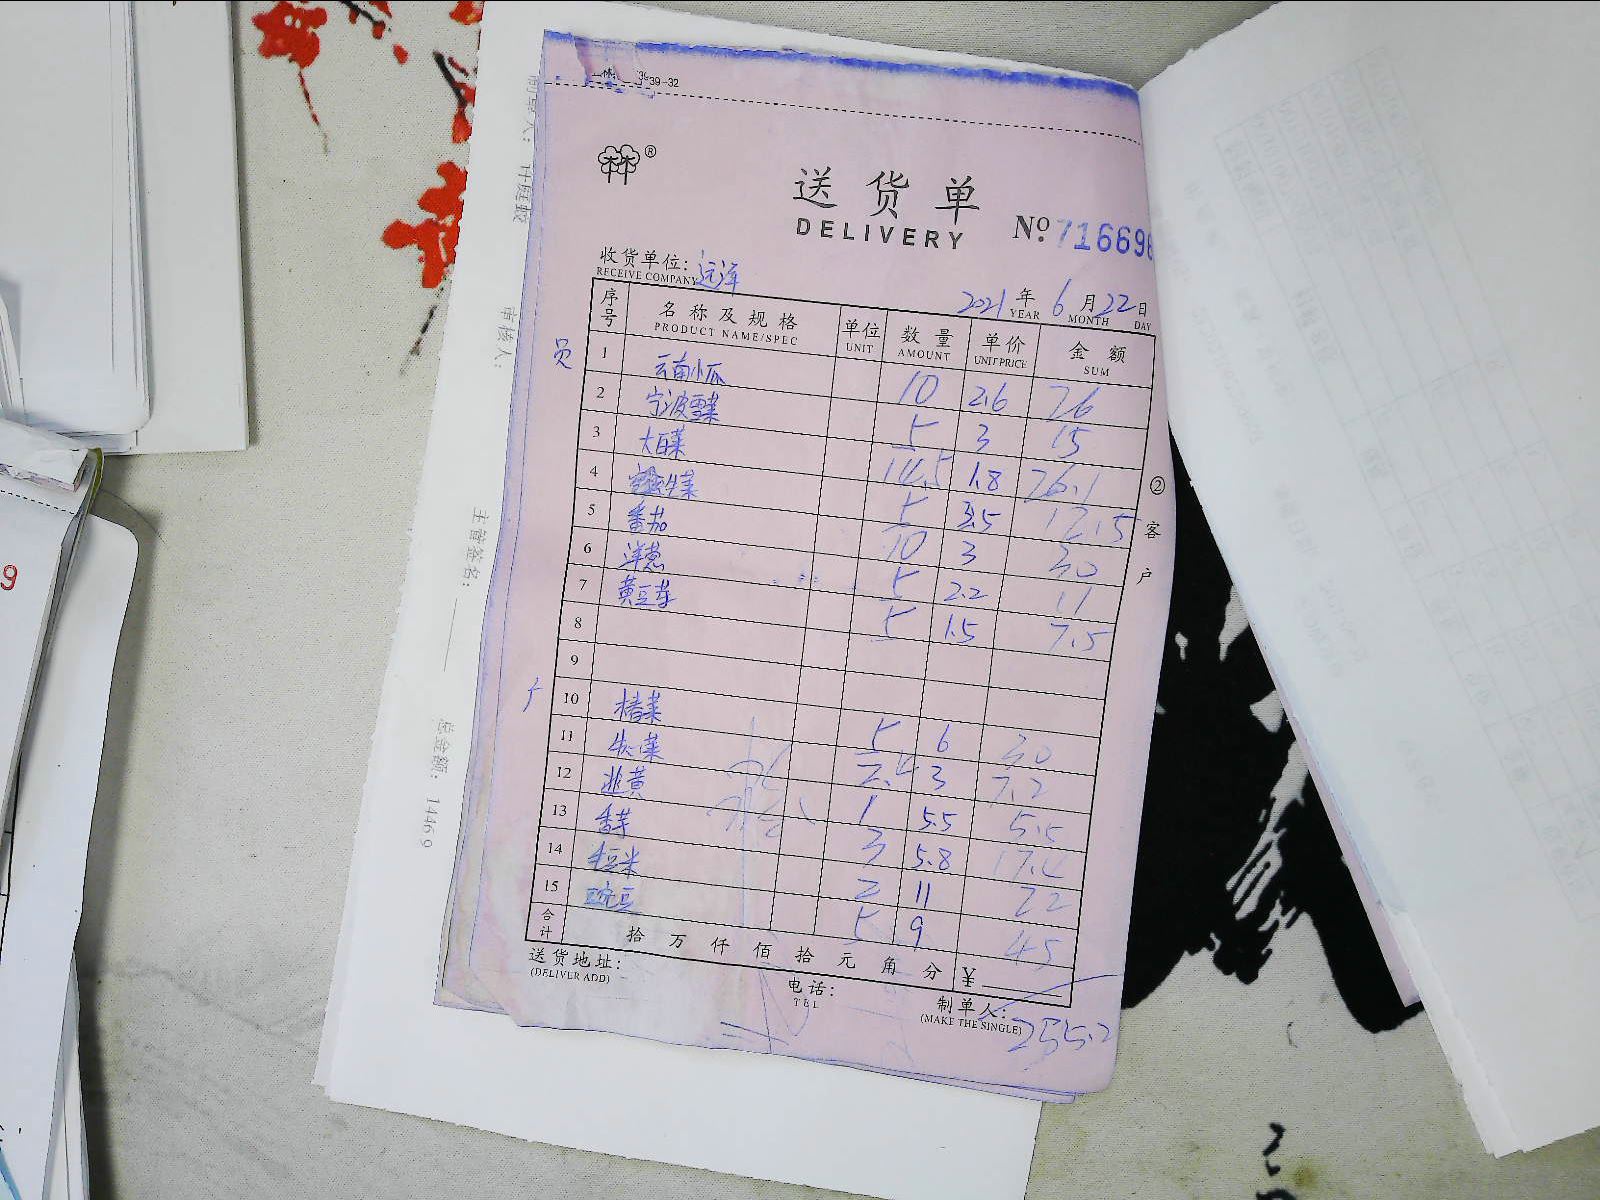 39-32
林®
送货单
DELIVERY
No. 716698
收货单位: 远洋
RECEIVE COMPANY
2021 年 6 月 22 日
YEAR MONTH DAY
序号 名称及规格 单位 数量 单价 金额
PRODUCT NAME/SPEC UNIT AMOUNT UNIT PRICE SUM
员
1 云南小瓜 10 2.6 26
2 宁波雪菜 5 3 15
3 大白菜 14.5 1.8 26.1
4 生菜 5 2.5 12.5
5 番茄 10 3 30
6 洋葱 5 2.2 11
7 黄豆芽 5 1.5 7.5
8
9
10 5 6 30
11 2.4 3 7.2
12 韭黄 1 5.5 5.5
13 香芋 3 5.8 17.4
14 2 11 22
15 豌豆 5 9 45
合计 拾 万 仟 佰 拾 元 角 分 ¥
255.2
送货地址:
(DELIVER ADD)
电话:
TEL
制单人:
(MAKE THE SINGLE)
② 客户
审核人:
主管签名:
总金额: 1446.9
9